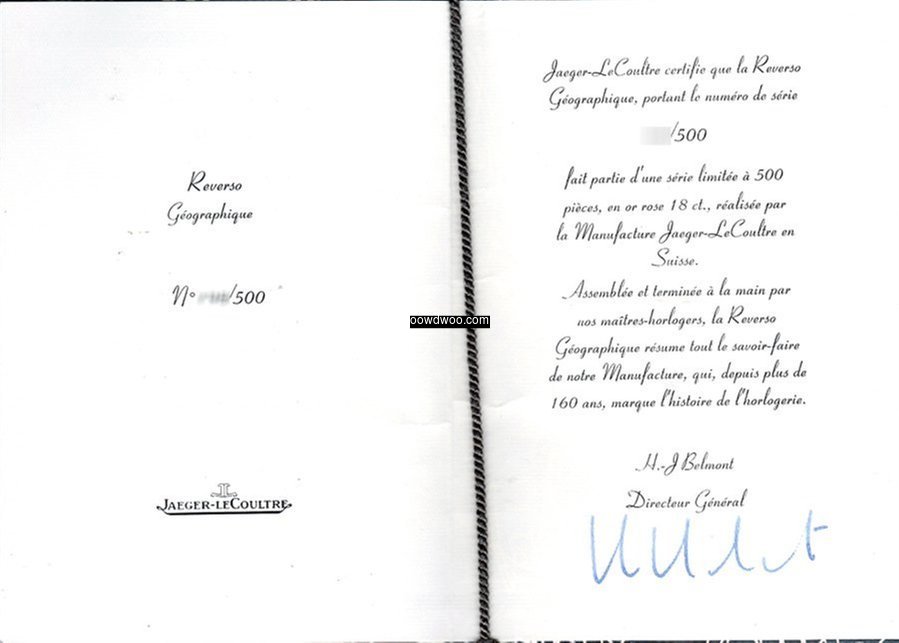 Reverso
Géographique
N° /500
JAEGER-LECOULTRE
oowdwoo.com
Jaeger-LeCoultre certifie que la Reverso
Géographique, portant le numéro de série
/500
fait partie d'une série limitée à 500
pièces, en or rose 18 ct., réalisée par
la Manufacture Jaeger-LeCoultre en
Suisse.
Assemblée et terminée à la main par
nos maîtres-horlogers, la Reverso
Géographique résume tout le savoir-faire
de notre Manufacture, qui, depuis plus de
160 ans, marque l'histoire de l'horlogerie.
H.-J Belmont
Directeur Général